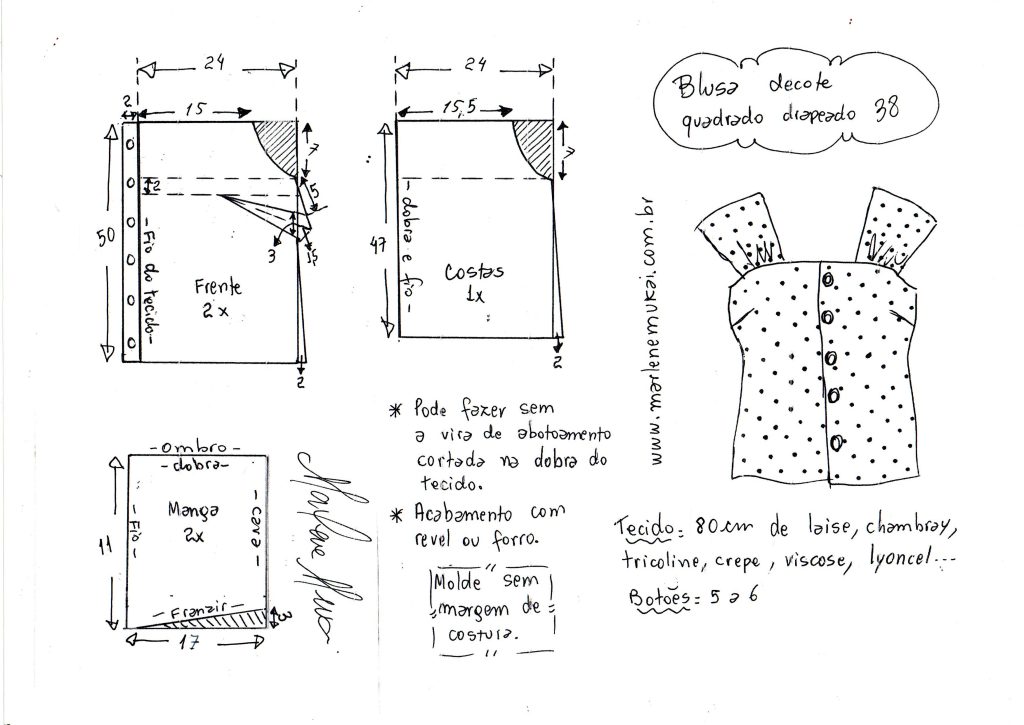 Blusa decote
quadrado drapeado 38
24
2
15
7
2
5
3
1,5
50
Fio do tecido
Frente
2x
2
24
15,5
7
47
dobra e fio
Costas
1x
2
www.marlenemukai.com.br
ombro
dobra
Manga
2x
Fio
cava
11
Franzir
3
17
* Pode fazer sem
a vira de abotoamento
cortada na dobra do
tecido.
* Acabamento com
revel ou forro.
Molde sem
margem de
costura.
Tecido: 80cm de laise, chambray,
tricoline, crepe, viscose, lyoncel...
Botões: 5 a 6